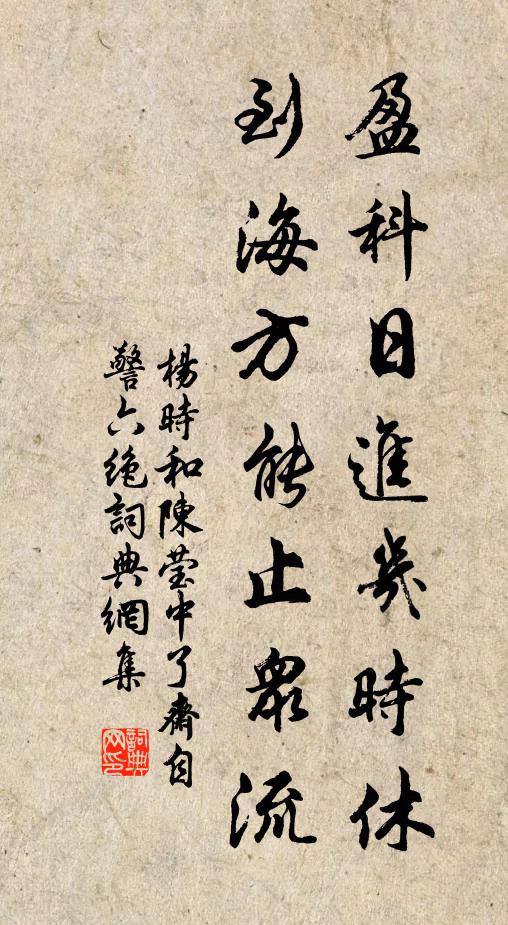 盈科日進幾時休
到海方能止眾流
楊時和陳瑩中了齋自
警六絕詞典網集
詞典網印